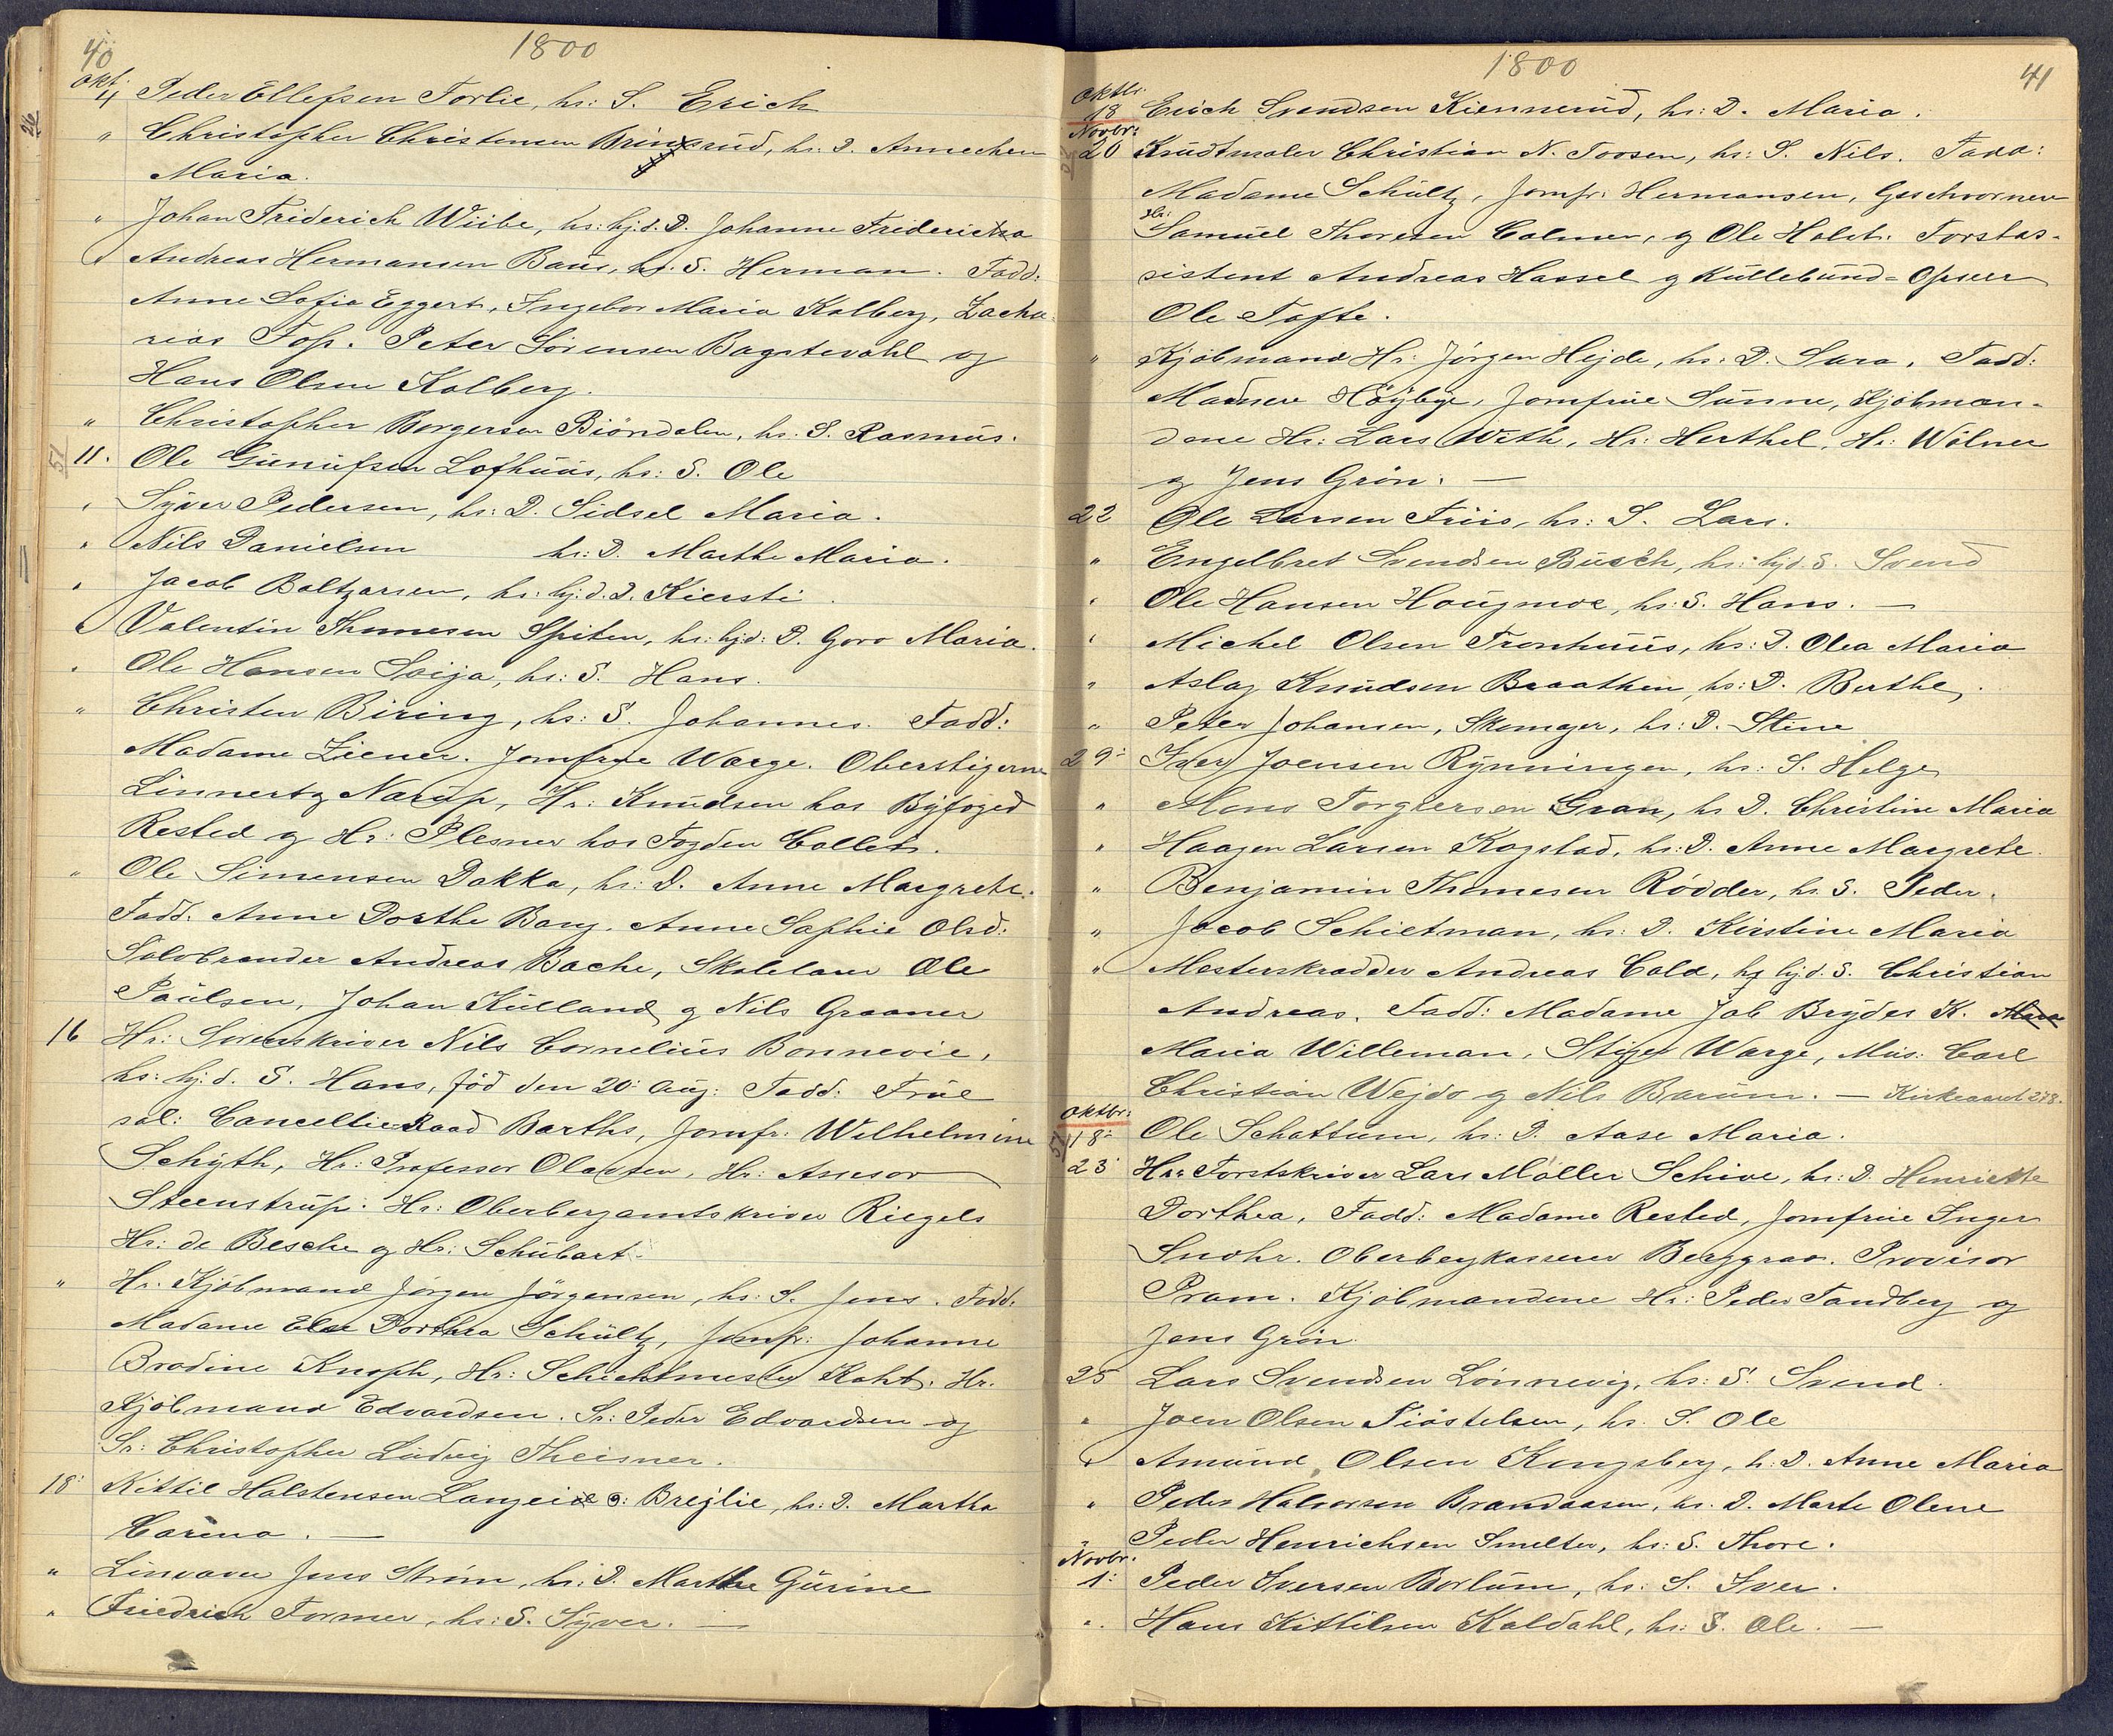 40
1800
Okt.
4 Peder Ellefsen Torlie, hs: S. Erich
" Christopher Christensen Brinxrud, hs: D. Annechen
Maria.
" Johan Friderich Wiibe, hs: hj.d. D. Johanne Friderica
" Andreas Hermansen Baus, hs. S. Herman. Fadd:
Anne Sofia Eggert, Ingebor Maria Kolberg, Zacha-
rias Fos. Peter Sørensen Bagstevahl og
Hans Olsen Kolberg.
" Christopher Borgersen Biöndalen, hs. S. Rasmus.
51
11. Ole Gunufsen Lofhuus, hs: S. Ole
" Syver Pedersen, hs: D. Sidsel Maria.
" Nils Danielsen hs: D. Marthe Maria.
" Jacob Baltzarsen, hs: hj.d. D. Kiersti.
" Valentin Thomesen Spiten, hs: hjd: D. Goro Maria.
" Ole Hansen Svija, hs: S. Hans.
" Christen Biring, hs: S. Johannes. Fadd:
Madame Ziener. Jomfrue Warge. Oberstigerne
Linnertz Narup, Hr: Knudsen hos Byfoged
Rested og Hr: Plesner hos Fogden Collett.
" Ole Simensen Dokka, hs: D. Anne Margrete.
Fadd. Anne Dorthe Bang. Anne Saphie Olsd:
Sølvbrænder Andreas Bache, Skolelærer Ole
Paulsen, Johan Kulland og Nils Graaner
16 Hr: Sorenskriver Nils Cornelius Bonnevie,
hs: hj.d. S. Hans, fød den 20: Aug: Fadd: Frue
sal: CancellieRaad Barths, Jomfr: Wilhelmine
Schyth, Hr: Professor Olavsen, Hr: Assesor
Steenstrup. Hr: Oberbergamtskriver Riegels
Hr: de Besche og Hr: Schubart.
" Hr. Kjøbmand Jørgen Jørgensen, hs: S. Jens. Fadd.
Madame Else Dorthea Schultz, Jomfr: Johanne
Brodine Knoph, Hr: Schichtmester Kahts. Hr.
Kjøbmand Edvardsen. Sr: Peder Edvardsen og
Sr: Christopher Ludvig Theisner.
18: Kittil Halstensen Langeie ɔ: Brejlie, hs: D. Martha
Carina. —
" Linvæver Jens Strøm, hs: D. Marthe Gurine
" Friedrich Former, hs: S. Syver. —
1800
41
Oktbr.
18 Erich Svendsen Kiennerud, hs: D. Maria.
Novbr:
20 Krudtmaler Christian N. Toosen, hs: S. Nils. Fadd:
Madame Schultz, Jomfr: Hermansen, Geschvornere
Hr: Samuel Thoresen Colmer, og Ole Holst. Forstas-
sistent Andreas Hassel og Kullebund-Opseer
Ole Tofte.
" Kjøbmand Hr: Jørgen Hejde, hs: D. Sara. Fadd:
Madmere Höybye, Jomfrue Sunne, Kjøbmæn-
dene Hr: Lars With, Hr: Herthel, Hr: Wölner
og Jens Grön. —
22 Ole Larsen Friis, hs: S. Lars.
" Engelbret Svendsen Busch, hs: hj.d. S. Svend
" Ole Hansen Hougmoe, hs: S. Hans. —
" Michel Olsen Tronhuus, hs: D. Olea Maria
" Aslag Knudsen Braathen, hs: D. Berthe.
" Peter Johansen, Skomager, hs: D. Stine
29: Iver Joensen Rynningen, hs: S. Helge
" Mons Torgiersen Gran, hs D. Christine Maria
" Haagen Larsen Kogstad, hs: D. Anne Margrete.
" Benjamin Thomesen Rödder, hs. S. Peder.
" Jacob Schietman, hs: D. Kirstine Maria
" Mesterskrædder Andreas Cold, hs hj.d. S. Christian
Andreas. Fadd: Madame Job Brydes K.
Maria Willeman, Stiger Warge, Mus: Carl
Christian Wejdo og Nils Barum. — Kirkeaand 278.
Oktbr:
18: Ole Schattum, hs: D. Aase Maria.
23: Hr: Forstskriver Lars Møller Schive, hs: D. Henriette
Dorthea, Fadd: Madame Rested, Jomfrue Inger
Snohr. Oberbergkasserer Berggrav. Provisor
Pram. Kjøbmændene Hr: Peder Tandberg og
Jens Grön.
25 Lars Svendsen Lönnevig, hs: S. Svend.
" Joen Olsen Tiöstelsen, hs. S. Ole
" Amund Olsen Kongsberg, h: D. Anne Maria
" Peder Halvorsen Brandaasen, hs. D. Marte Olene
" Peder Henrichsen Smelter, hs: S. Thore.
Novbr:
1: Peder Iversen Borlum, hs: S. Iver.
" Hans Kittilsen Kaldahl, hs: S. Ole. —